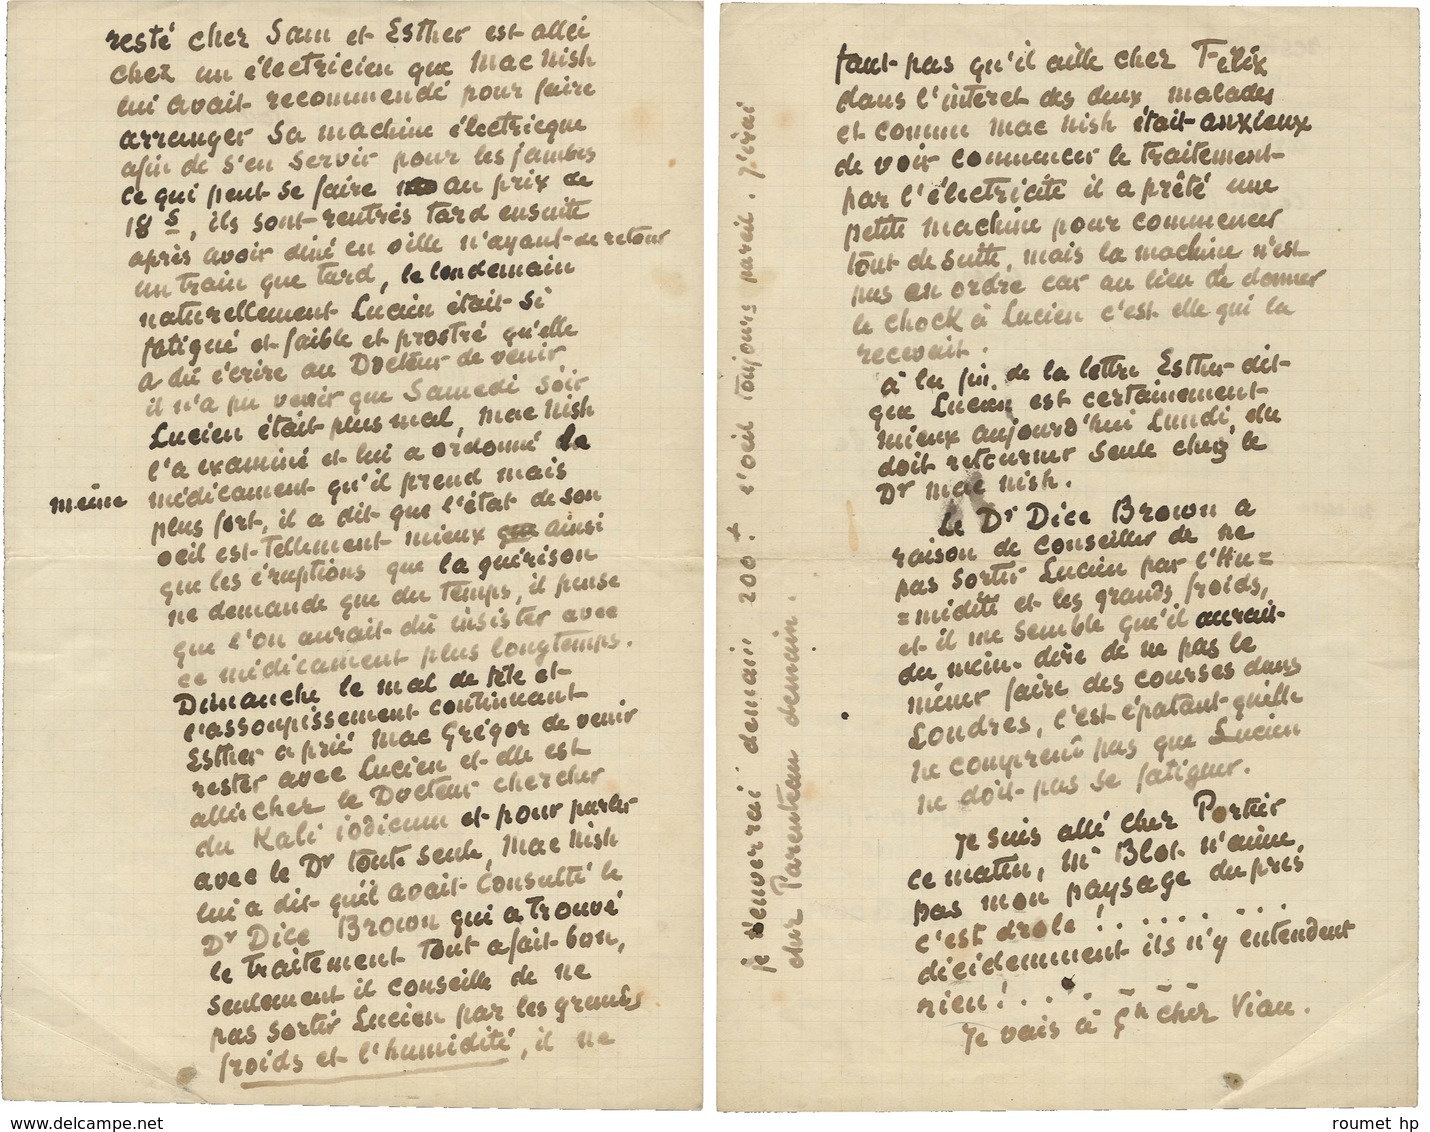 resté cher Sam et Esther est allei
chez un électricien que Mac Nish
lui avait recommendé pour faire
arranger sa machine électricque
afin de s'en servir pour les jambes
ce qui peut se faire au prix de
18 s, ils sont rentrés tard ensuite
après avoir diné en ville n'ayant de retour
un train que tard, le lendemain
naturellement Lucien était si
fatigué et faible et prostré qu'elle
a dû écrire au Docteur de venir
il n'a pu venir que Samedi soir
Lucien était plus mal, Mac Nish
l'a examiné et lui a ordonné le
même médicament qu'il prend mais
plus fort, il a dit que l'état de son
oeil est tellement mieux que ainsi
que les éruptions que la guérison
ne demande que du temps, il pense
que l'on aurait dû insister avec
ce médicament plus longtemps.
Dimanche le mal de tête et
l'assoupissement continuant
Esther a prié Mac Grégor de venir
rester avec Lucien et elle est
allée chez le Docteur chercher
du Kali iodicum et pour parler
avec le Dr toute seule, Mac Nish
lui a dit qu'il avait consulté le
Dr Dice Brown qui a trouvé
le traitement tout a fait bon,
seulement il conseille de ne
pas sortir Lucien par les grands
froids et l'humidité, il ne
faut pas qu'il aille cher Félix
dans l'interet des deux malades
et comme Mac Nish était anxieux
de voir commencer le traitement
par l'électricité il a prêté une
petite machine pour commencer
tout de suite, mais la machine n'est
pas en ordre car au lieu de donner
le chock à Lucien c'est elle qui la
recevait.
à la fin de la lettre Esther dit
que Lucien est certainement
mieux aujourd'hui Lundi, elle
doit retourner seule chez le
Dr Mac Nish.
Le Dr Dice Brown a
raison de conseiller de ne
pas sortir Lucien par l'Hu=
=midité et les grands froids,
et il me semble qu'il aurait
du m'en dire de ne pas le
mener faire des courses dans
Londres, c'est épatant qu'elle
ne comprenne pas que Lucien
ne doit pas se fatiguer.
Je suis allé cher Portier
ce matin, Mr Blot n'aime
pas mon paysage du pres
c'est drole !. . . . . . . . .
décidemment ils n'y entendent
rien !. . . . - - - -
Je vais à cher Viau.
je t'enverrai demain 200 f. l'oeil toujours pareil. j'irai
cher Parenteau demain.
roumet hp